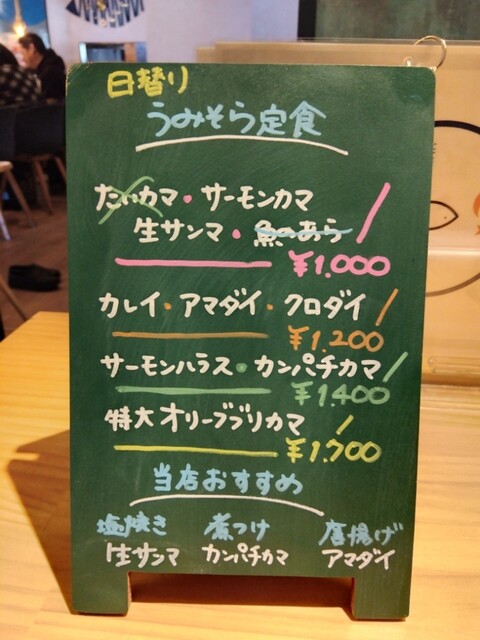 日替り
うみそら定食
たいカマ・サーモンカマ
生サンマ・魚のあら
¥1.000
カレイ・アマダイ・クロダイ
¥1.200
サーモンハラス・カンパチカマ
¥1.400
特大オリーブブリカマ
¥1.700
当店おすすめ
塩焼き 煮つけ 唐揚げ
生サンマ カンパチカマ アマダイ